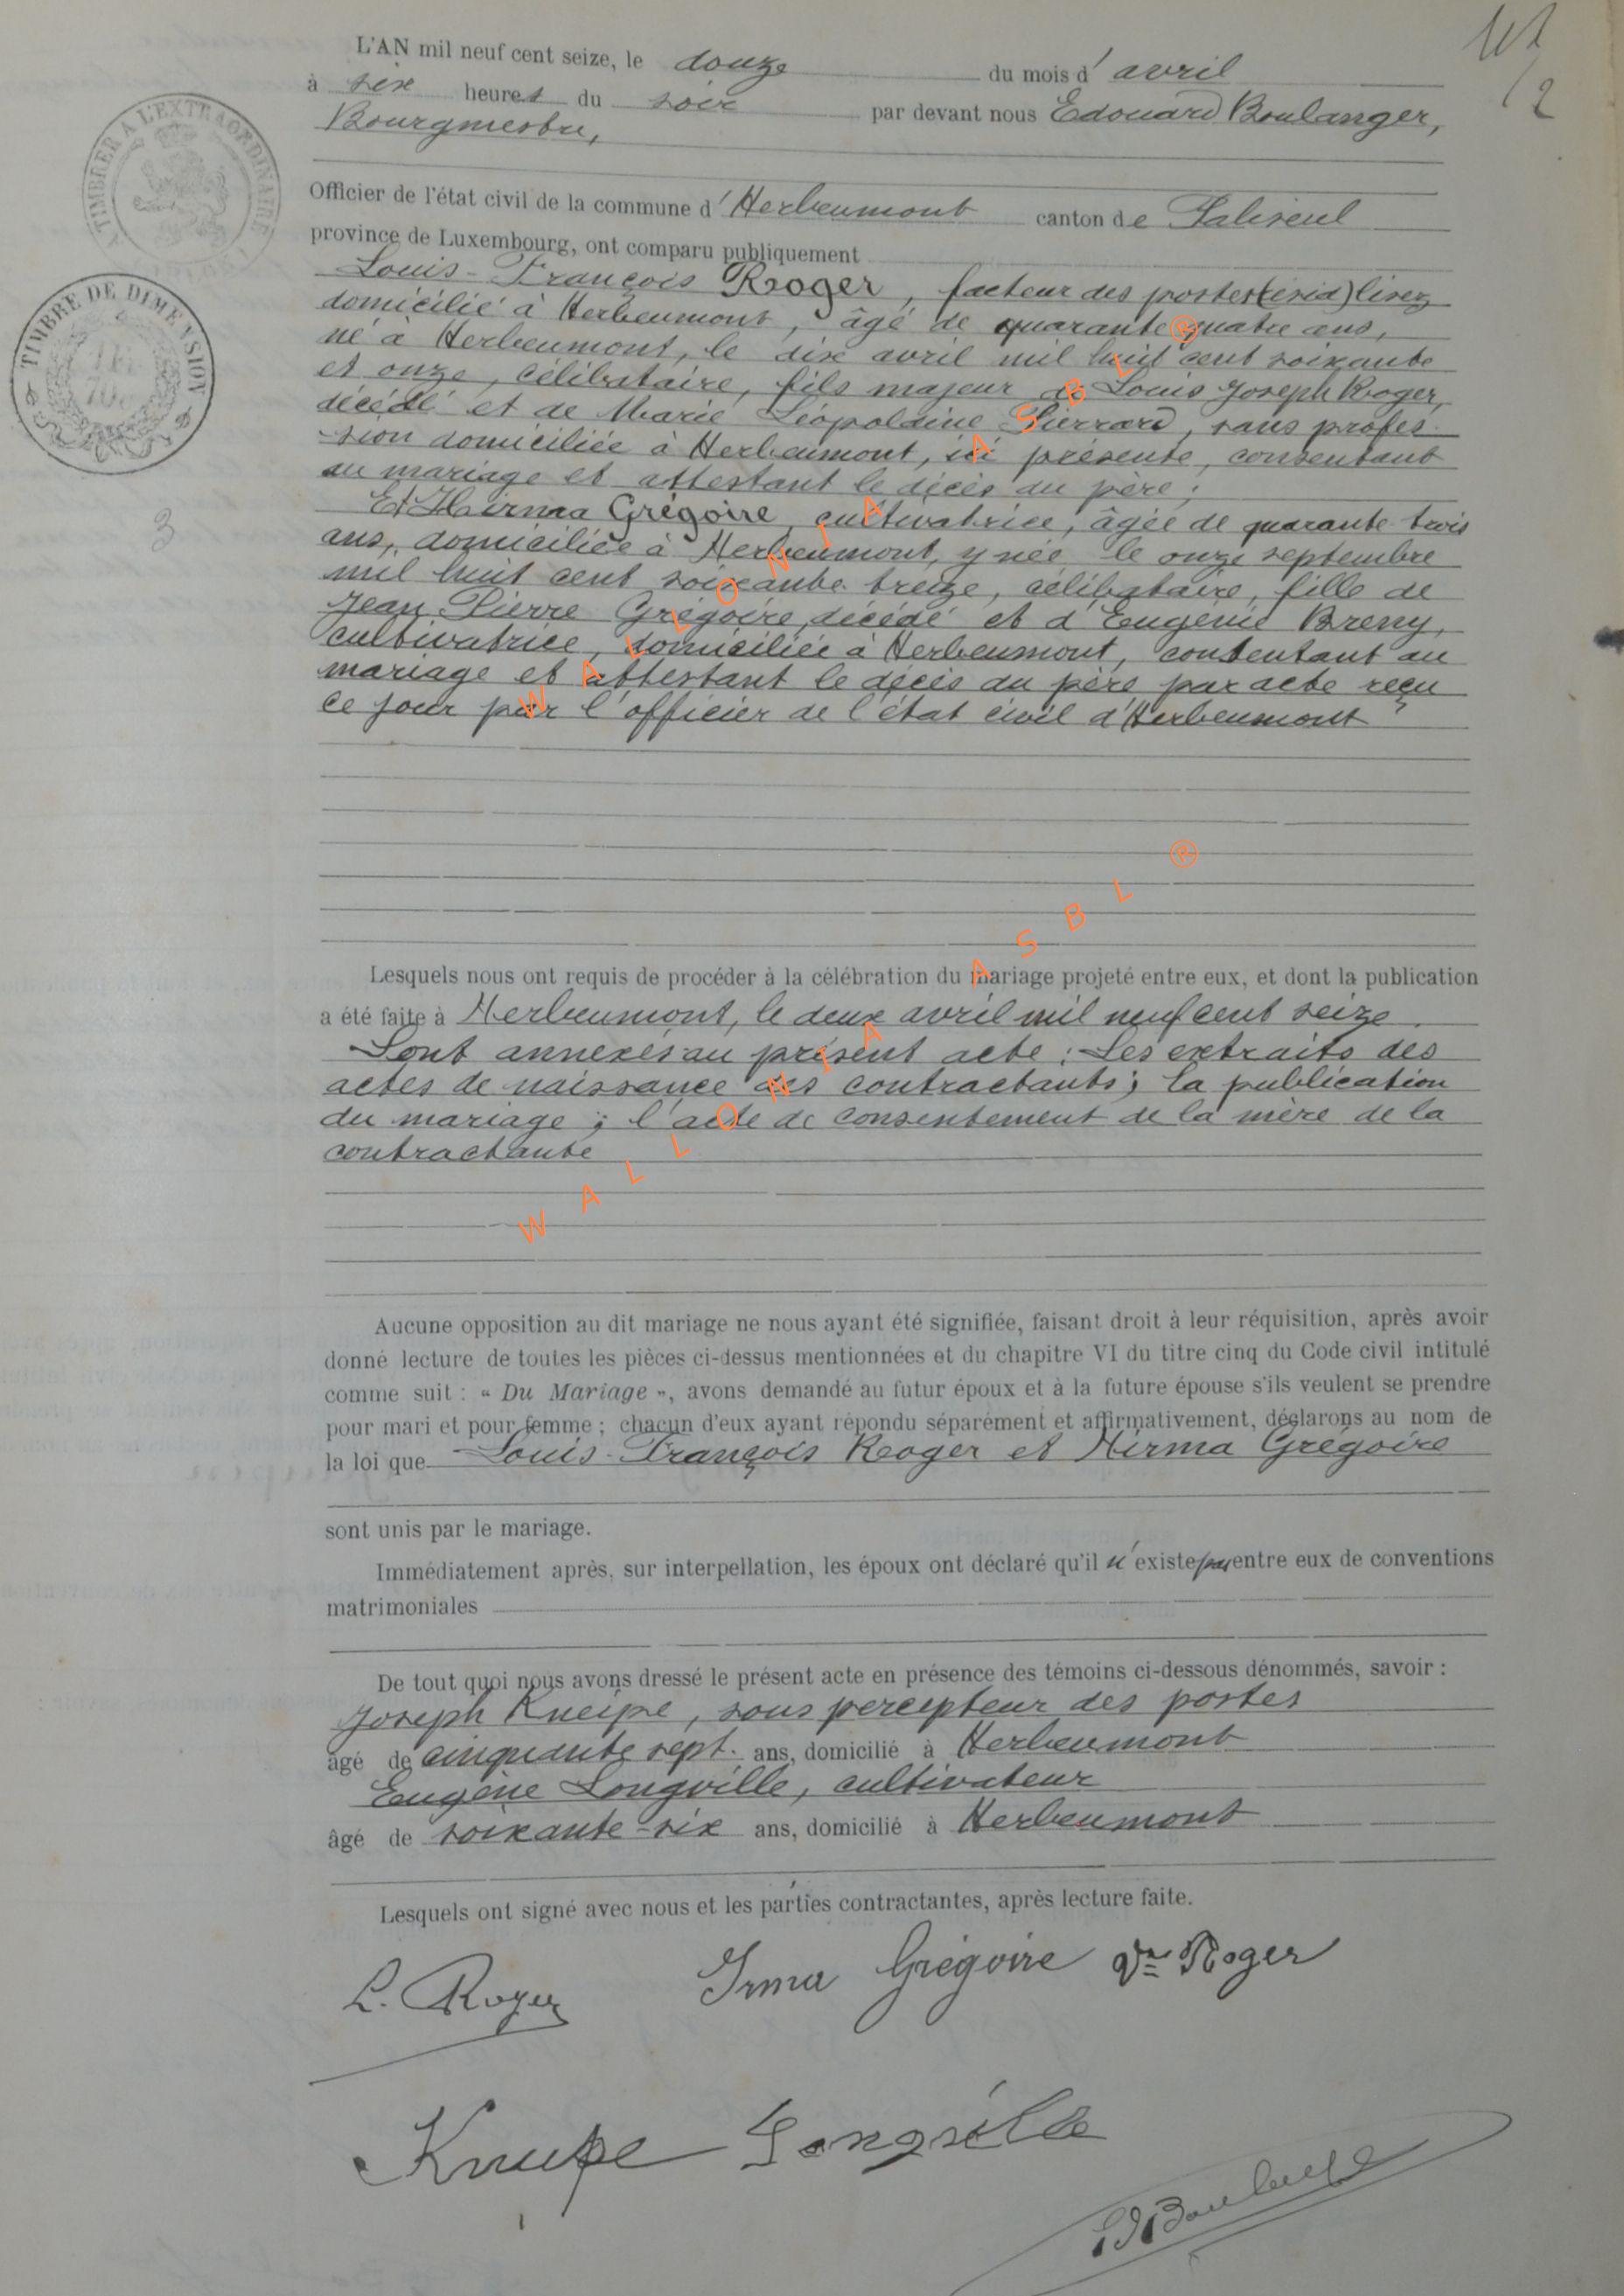 L'AN mil neuf cent seize, le douze du mois d'avril
à six heures du soir par devant nous Edouard Boulanger,
Bourgmestre,
Officier de l'état civil de la commune d'Herbeumont canton de Paliseul
province de Luxembourg, ont comparu publiquement
Louis-François Roger, facteur des postes lisez
domicilié à Herbeumont, âgé de quarante quatre ans,
né à Herbeumont, le dix avril mil huit cent soixante
et onze, célibataire, fils majeur de Louis Joseph Roger,
décédé et de Marie Léopoldine Pierrard, sans profes-
sion domiciliée à Herbeumont, ici présente, consentant
au mariage et attestant le décès du père;
Et Hirma Grégoire, cultivatrice, âgée de quarante trois
ans, domiciliée à Herbeumont, y née le onze septembre
mil huit cent soixante treize, célibataire, fille de
Jean Pierre Grégoire, décédé et d'Eugénie
cultivatrice, domiciliée à Herbeumont, consentant au
mariage et attestant le décès du père par acte reçu
ce jour par l'officier de l'état civil d'Herbeumont
Lesquels nous ont requis de procéder à la célébration du mariage projeté entre eux, et dont la publication
a été faite à Herbeumont, le deux avril mil neuf cent seize.
Sont annexés au présent acte : Les extraits des
actes de naissance des contractants; la publication
du mariage; l'acte de consentement de la mère de la
contractante
Aucune opposition au dit mariage ne nous ayant été signifiée, faisant droit à leur réquisition, après avoir
donné lecture de toutes les pièces ci-dessus mentionnées et du chapitre VI du titre cinq du Code civil intitulé
comme suit : « Du Mariage », avons demandé au futur époux et à la future épouse s'ils veulent se prendre
pour mari et pour femme ; chacun d'eux ayant répondu séparément et affirmativement, déclarons au nom de
la loi que Louis-François Roger et Hirma Grégoire
sont unis par le mariage.
Immédiatement après, sur interpellation, les époux ont déclaré qu'il n'existe pas entre eux de conventions
matrimoniales
De tout quoi nous avons dressé le présent acte en présence des témoins ci-dessous dénommés, savoir :
Joseph Kneipe, sous percepteur des postes
âgé de cinquante sept. ans, domicilié à Herbeumont
Eugène Longville, cultivateur
âgé de soixante-six ans, domicilié à Herbeumont
Lesquels ont signé avec nous et les parties contractantes, après lecture faite.
L. Roger Irma Grégoire Vve Roger
Kneipe Longville
Ed Boulanger
TIMBRER A L'EXTRAORDINAIRE
TIMBRE DE DIMENSION
3
WALLONIA ASBL ®
WALLONIA ASBL ®